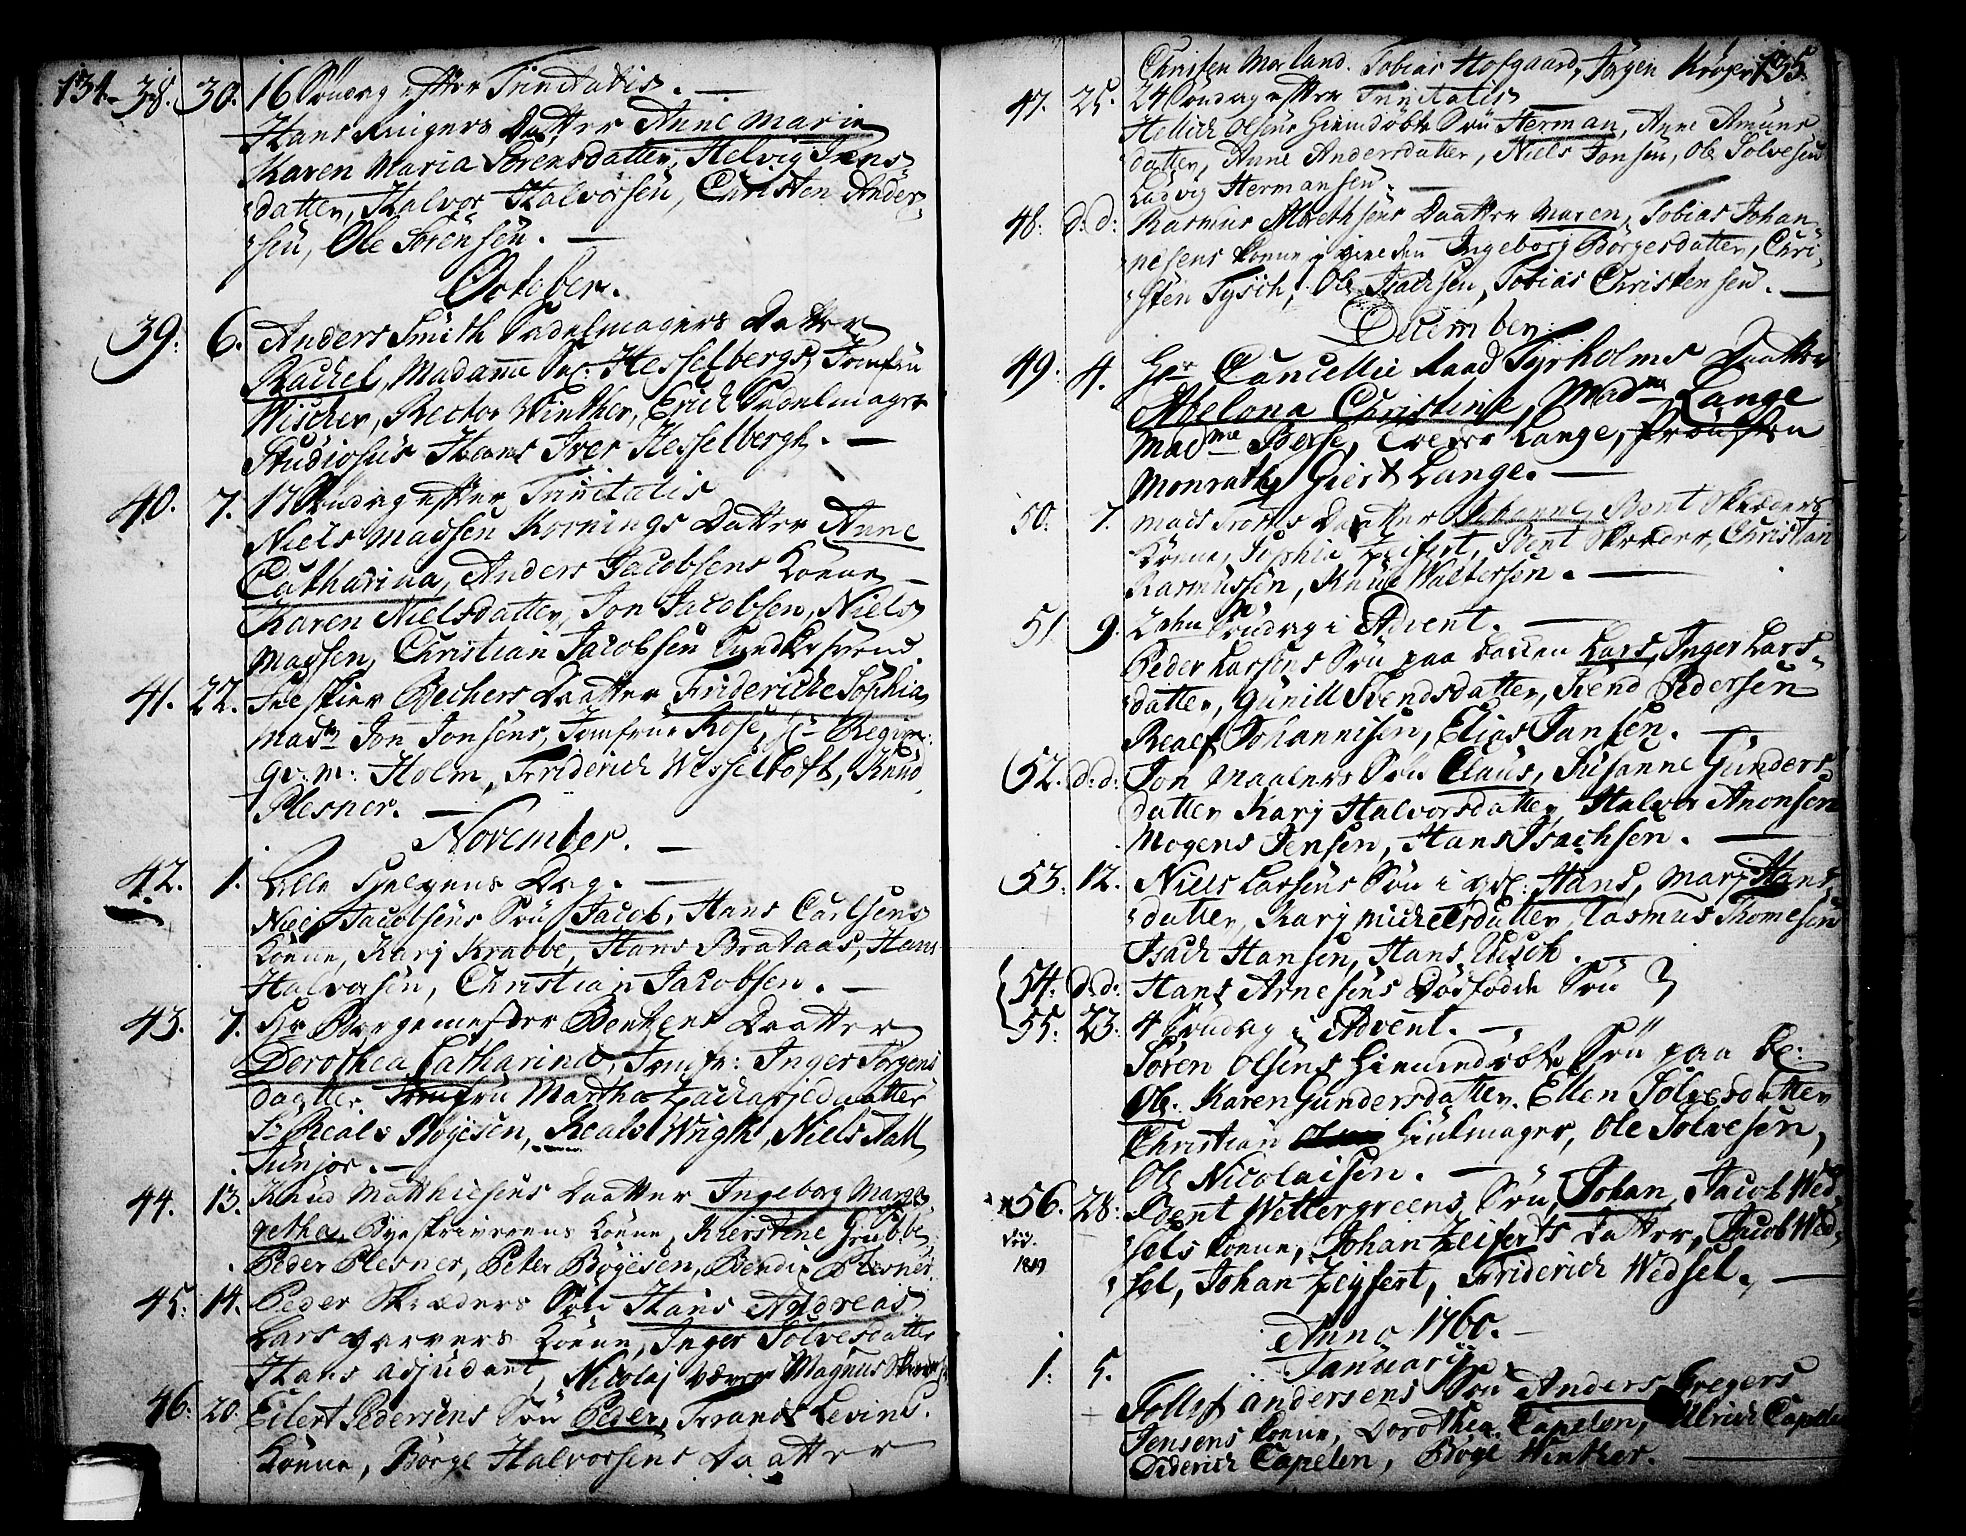 134. 38. 30. 16 Söndag efter Trinitatis.
Hans Daatter Anne Marie
Karen Maria Sörensdatter, Helvig Jens
datter, Halvor Halvorsen, Christen Ander-
sen, Ole Sörensen.
October.
39. 6. Anders Smith Sadelmagers Datter
Rachel, Madame Hesselbergs, Jomfrü
Wischer, Rector Winther, Erich Sadelmager
Studiosus Hans Iver Hesselbergh.
40. 7. 17 Söndag efter Trinitatis
Niels Madsen Kornings Datter Anne
Catharina, Anders Jacobsens Kone
Karen Nielsdatter, Jon Jacobsen, Niels
Madsen, Christian Jacobsen
41. 22. Bechers Daatter Frideriche Sophia
Jon Jonsens, Jomfrue Rose, Hr Regim:
qv: m: Holm, Friderich Wesseltoft, Knud
Plesner.
November.
42. 1. Alle Helgens Dag.
Niels Jacobsens Sön Jacob, Hans Carlsens
Kone, Karj Krabbe, Hans Brataas, Hans
Halvorsen, Christian Jacobsen.
43. 7. Hr Borgemester Bentzens Daatter
Dorothea Catharina, Jomfr: Inger Jörgens
datter, Jomfrü Martha Zachariædaatter
Sr Reals Böyesen, Wrigh, Niels Aall
Junior.
44. 13. Knud Matthiesens Daatter Ingeborg Marge
getha, Byeskriverens Kone, Kierstine Grubbe
Peder Plesner, Peter Böyesen, Bendix Plesner.
45. 14. Peder Skræders Sön Hans Andreas
Lars Garvers Kone, Inger Solvesdatter
Hans Adjudant, Nicolaj Væver Magnus
46. 20. Eilert Pedersens Sön Peder, Frands Levins
Kone, Börge Halvorsens Daatter
135.
Christen Morland. Tobias Hofgaard, Jörgen Kröger
47. 25. 24 Söndag efter Trinitatis
Hellich Olsens Hiemdöbte Sön Herman, Anne Amuns
datter, Anne Andersdatter, Niels Jonsen, Ole Solvesen
Ludvig Hermansen.
48. d: d: Rasmus Albrethsens Daatter Maren, Tobias Johan
nesens Kone Ingeborj Börgesdatter, Chri-
sten Tysch, Ole Isachsen, Tobias Christensen.
December.
49. 4. Hr Cancellie Raad Tyrholms Daatter
Abelona Christine, Madme Lange
Madme Lange,
Monrath, Giert Lange.
50. 7. Mads Daatter Johanne, Bent Skræders
Kone, Sophie Zeifert, Bent Skræder, Christian
Rasmussen, Knud Waltersen.
51. 9. 2den Söndag i Advent.
Peder Larsens Sön paa Lars, Inger Lars-
datter, Gunill Svendsdatter, Svend Pedersen
Johannisen, Elias Jansen.
52. d: d: Jon Maalers Sön Claus, Susanne Gunders
datter Karj Halvorsdatter, Halvor Anonsen
Mogens Jensen, Hans Isachsen.
53. 12. Niels Larsens Sön i Hans, Marj Hans
datter, Karj Michelsdatter, Rasmus Thomesen
Isach Hansen, Hans
54. d: d: Hans Arnesens Dödfödde Sön
55. 23. 4 Söndag i Advent.
Sören Olsens Hiemmedöbte Sön paa
Ole. Karen Gundersdatter. Ellen Solvesdatter
Christian Hiulmager, Ole Solvesen,
Ole Nicolaisen.
56. 28. Wettergreens Sön Johan, Jacob Wed-
sels Kone, Johan Zeiferts Datter, Jacob Wed-
sel, Johan Zeyfert, Friderich Wedsel.
Anno 1760.
Januarij
1: 5. Tollef Andersens Sön Anders, Gregers
Jensens Kone, Dorothea Capelen, Ulrich Capelen
Diderich Capelen, Böge Winther.